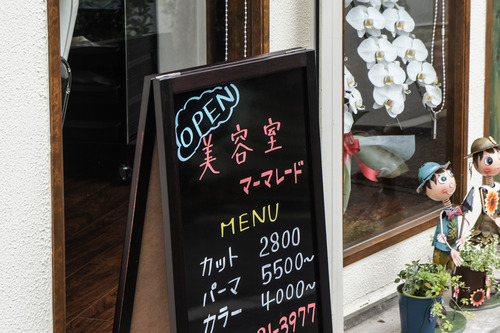 OPEN
美容室
マーマレード
MENU
カット 2800
パーマ 5500~
カラー 4000~
1-3977